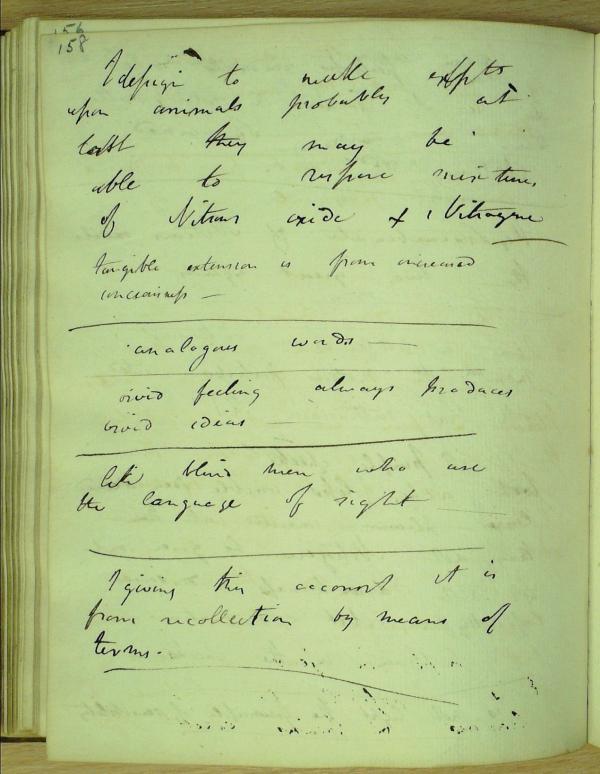 156
158
I design to make expts
upon animals probably at
last they may be
able to respire mixtures
of Nitrous oxide & Nitrogene
tangible extension is from increased
conciousness —
analogous words —
vivid feeling always produces
vivid ideas —
like blind men who use
the language of sight —
I giving this account it is
from recollection by means of
terms.